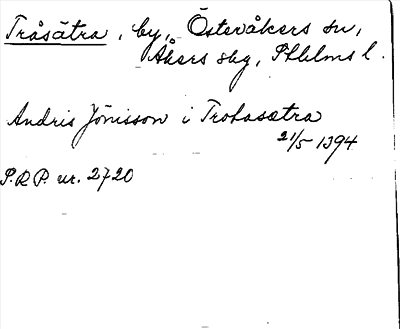 Tråsätra, by, Österåkers sn,
Åkers skg, Sthlms l.
Andris Jönisson i Trohasætra
21/5 1394
S.R.P. nr. 2720